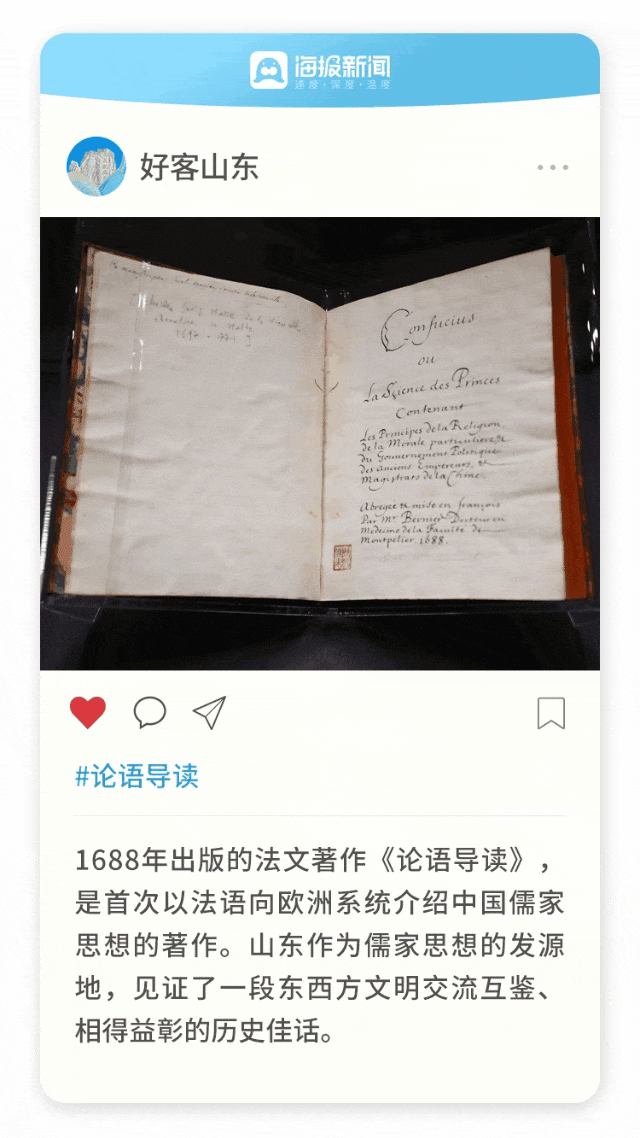 海报新闻
速度·深度·温度
好客山东
1697-1774
Confucius
ou
La Science des Princes
Contenant
Les Principes de la Religion,
de la Morale particuliere et
du Gouvernement Politique
des anciens Empereurs, et
Magistrats de la Chine.
Abregée et mise en françois
Par Mr. Bernier Docteur en
Medecine de la Faculté de
Montpelier. 1688.
#论语导读
1688年出版的法文著作《论语导读》，
是首次以法语向欧洲系统介绍中国儒家
思想的著作。山东作为儒家思想的发源
地，见证了一段东西方文明交流互鉴、
相得益彰的历史佳话。